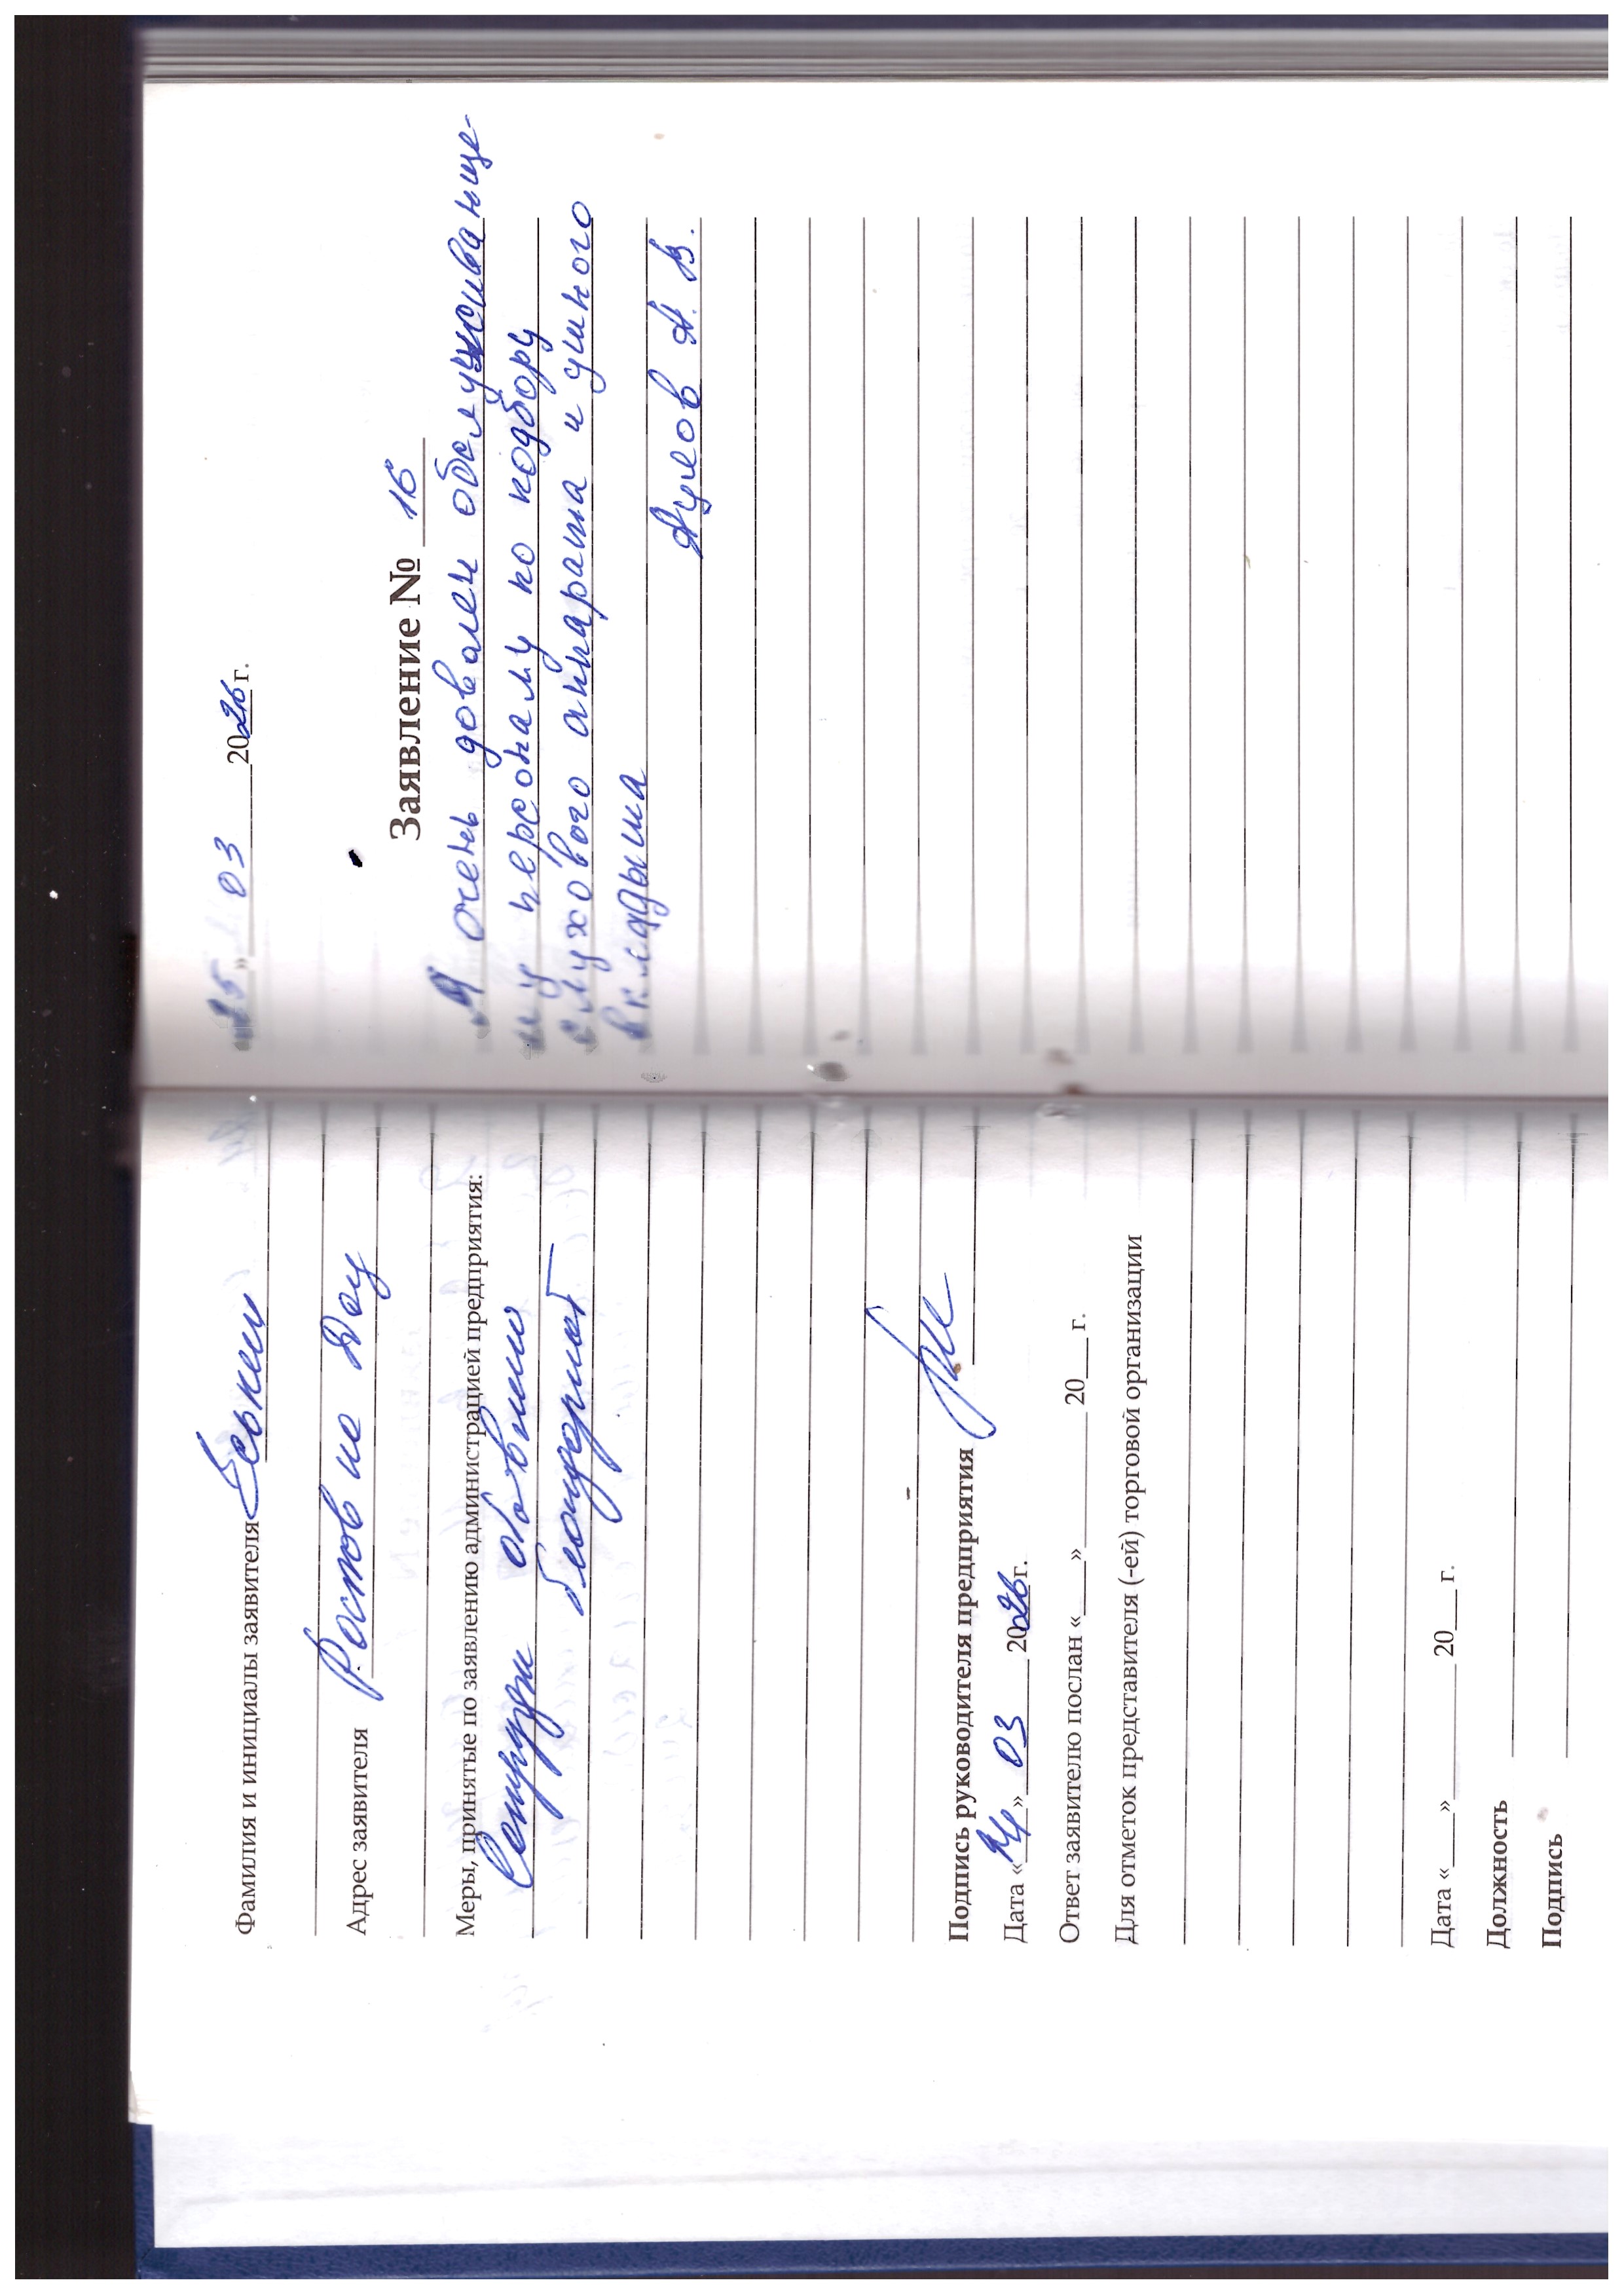 Фамилия и инициалы заявителя
Адрес заявителя Ростов на Дону
Меры, принятые по заявлению администрацией предприятия:
объявлена
благодарность
Подпись руководителя предприятия
Дата « » 03 2026г.
Ответ заявителю послан «___»________ 20___г.
Для отметок представителя (-ей) торговой организации
Дата «___»________ 20___ г.
Должность
Подпись
25 » 03 2026 г.
Заявление № 16
Я очень довален обслуживающе-
му персоналу по подбору
слухового аппарата и ушного
вкладыша
А. В.